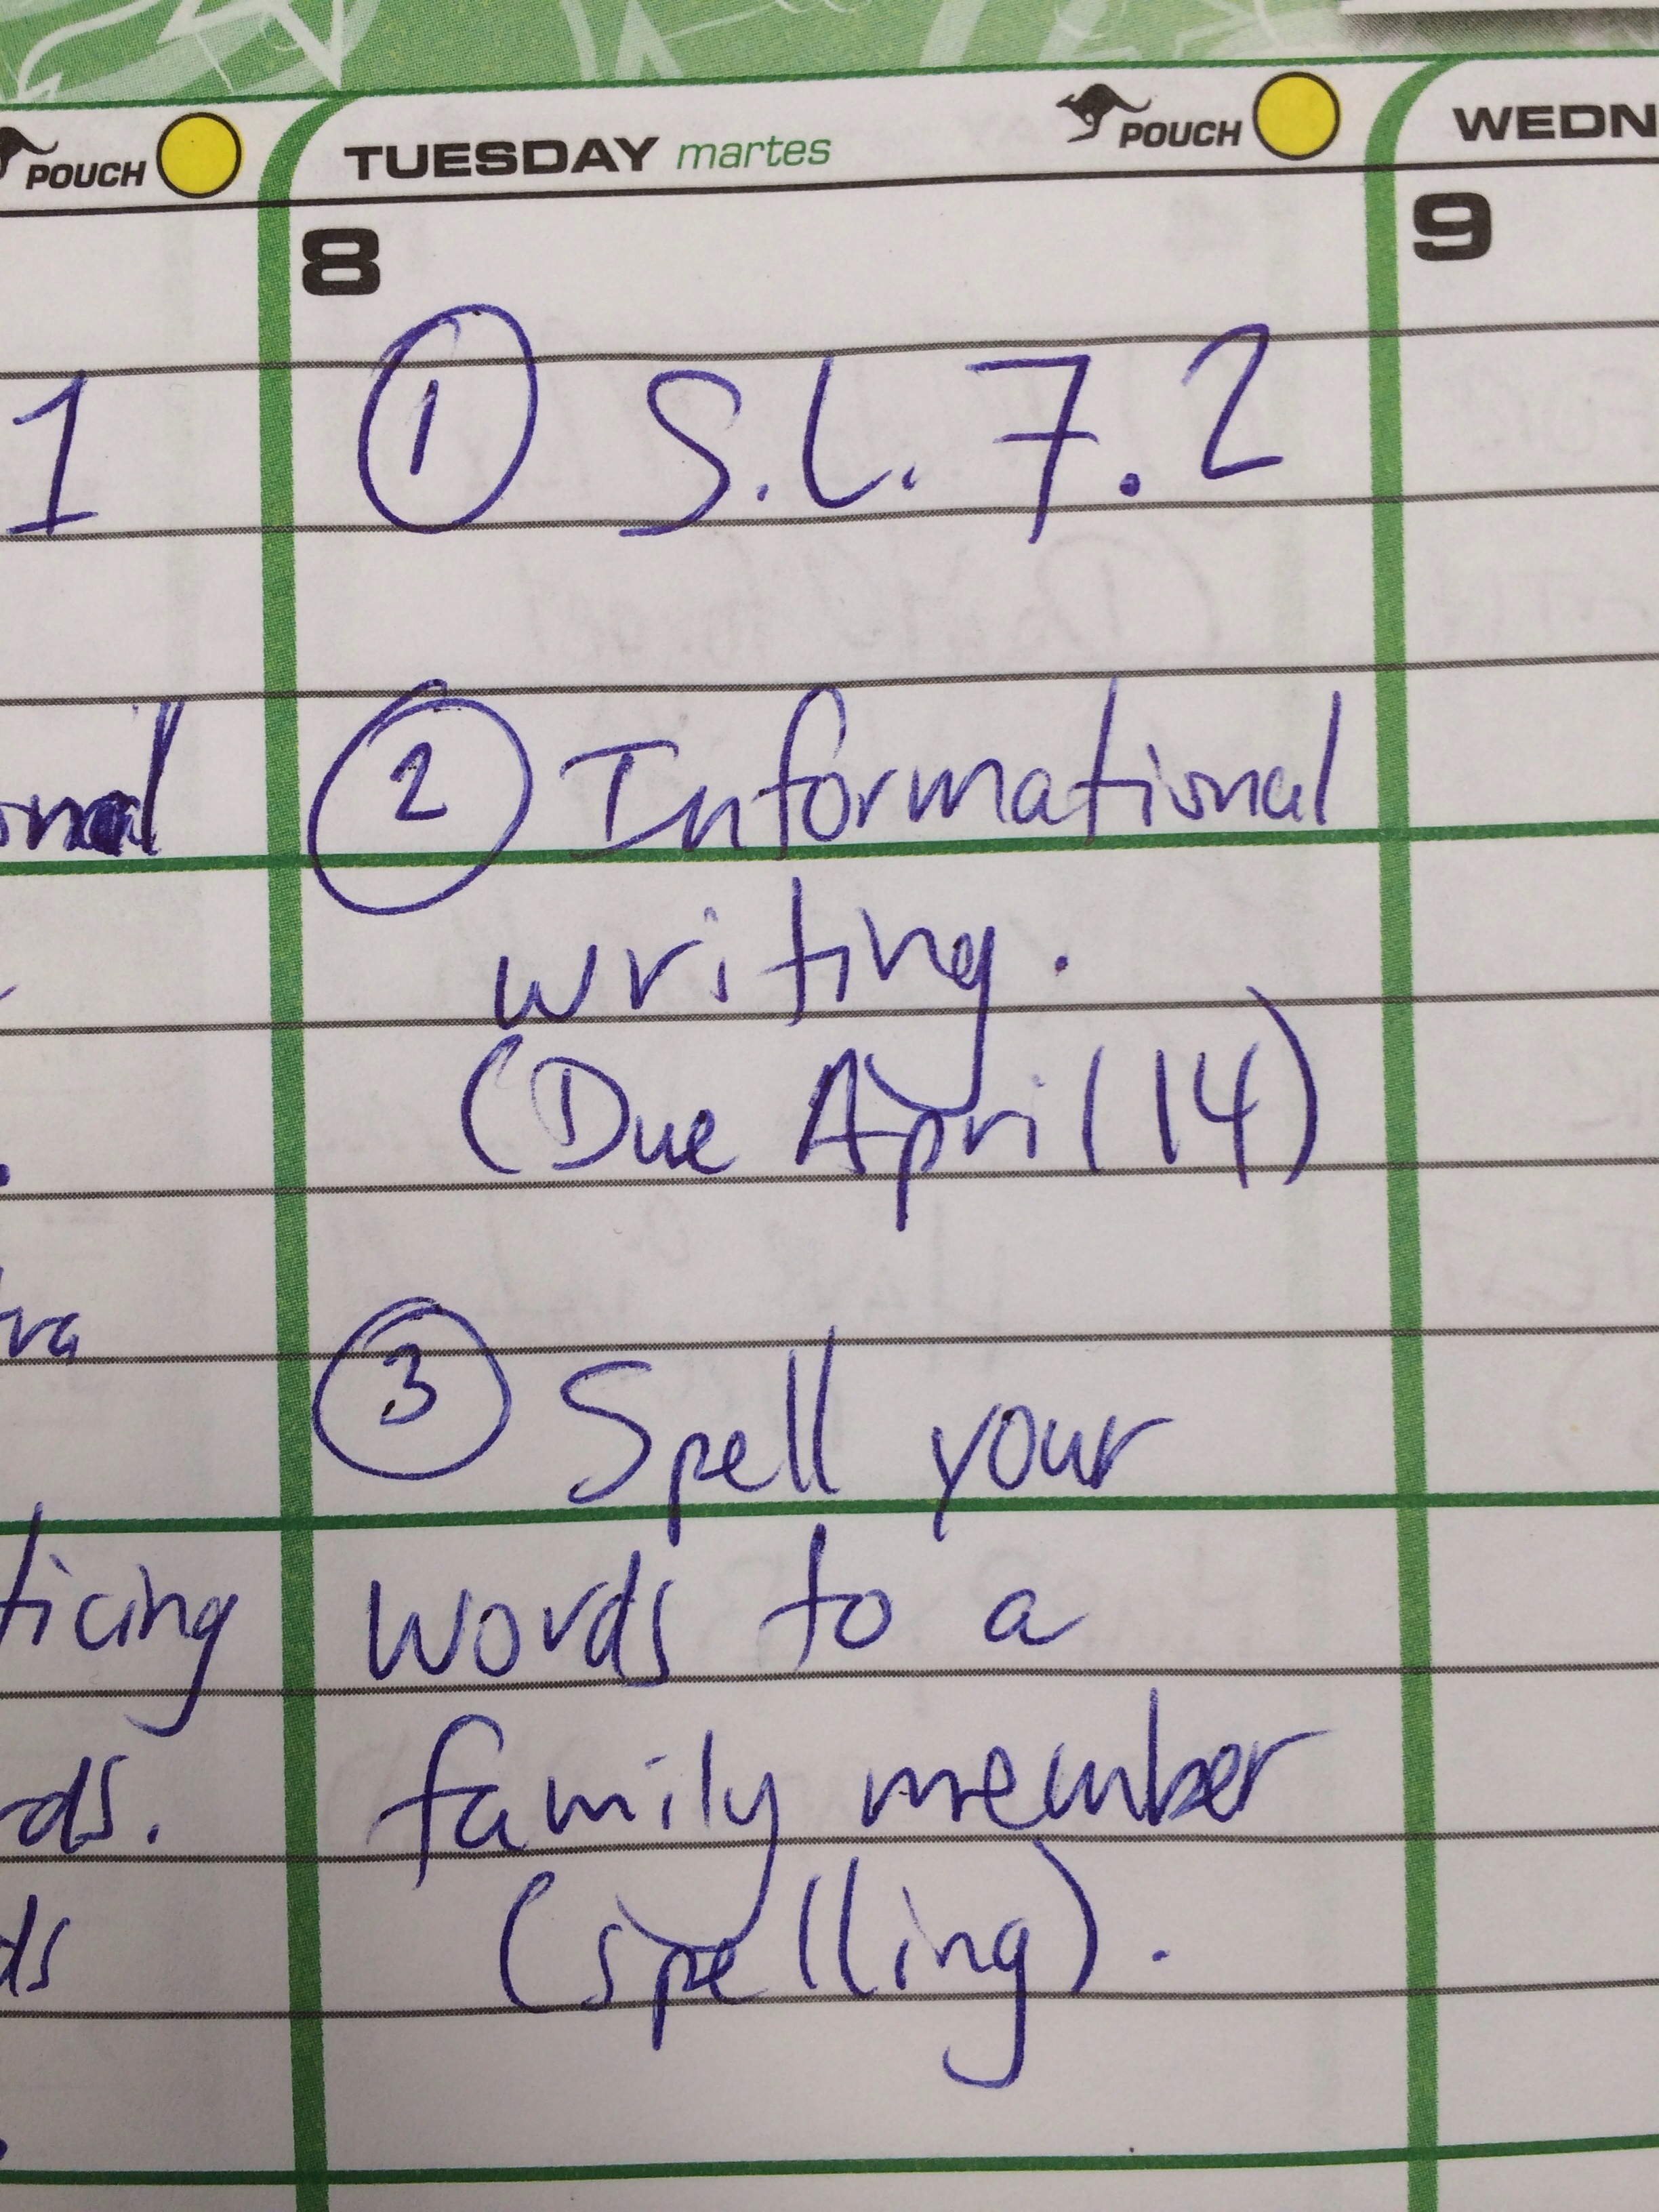 POUCH
TUESDAY martes
POUCH
8
9
1
① S.L. 7.2
② Informational
writing.
(Due April 14)
③ Spell your
ticing
words to a
family member
ds.
(spelling).
ds